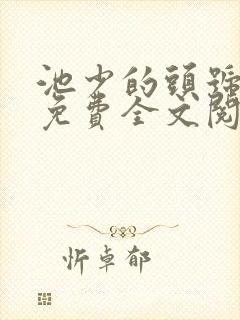 池少的頭號
免費全文閱
忻卓郁